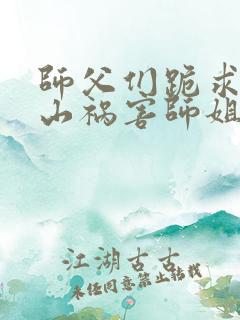 師父们跪求
山祸害師姐
江湖古古
未任同意禁止转载